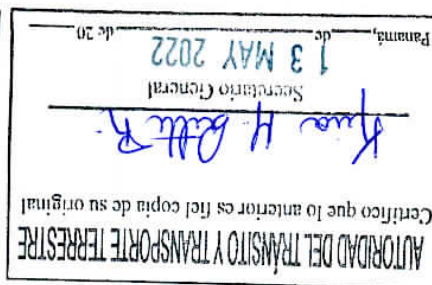 AUTORIDAD DEL TRÁNSITO Y TRANSPORTE TERRESTRE
Certifico que lo anterior es fiel copia de su original
Secretario General
13 MAY 2022
Panamá, ____ de ________ de 20 ____